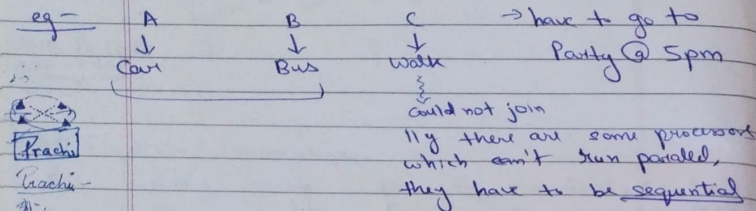 eg - A B C → have to go to
↓ ↓ ↓ Party @ 5pm
Car Bus Walk
Could not join
Prachi lly there are some processors
which can't run parallel,
Prachi - they have to be sequential